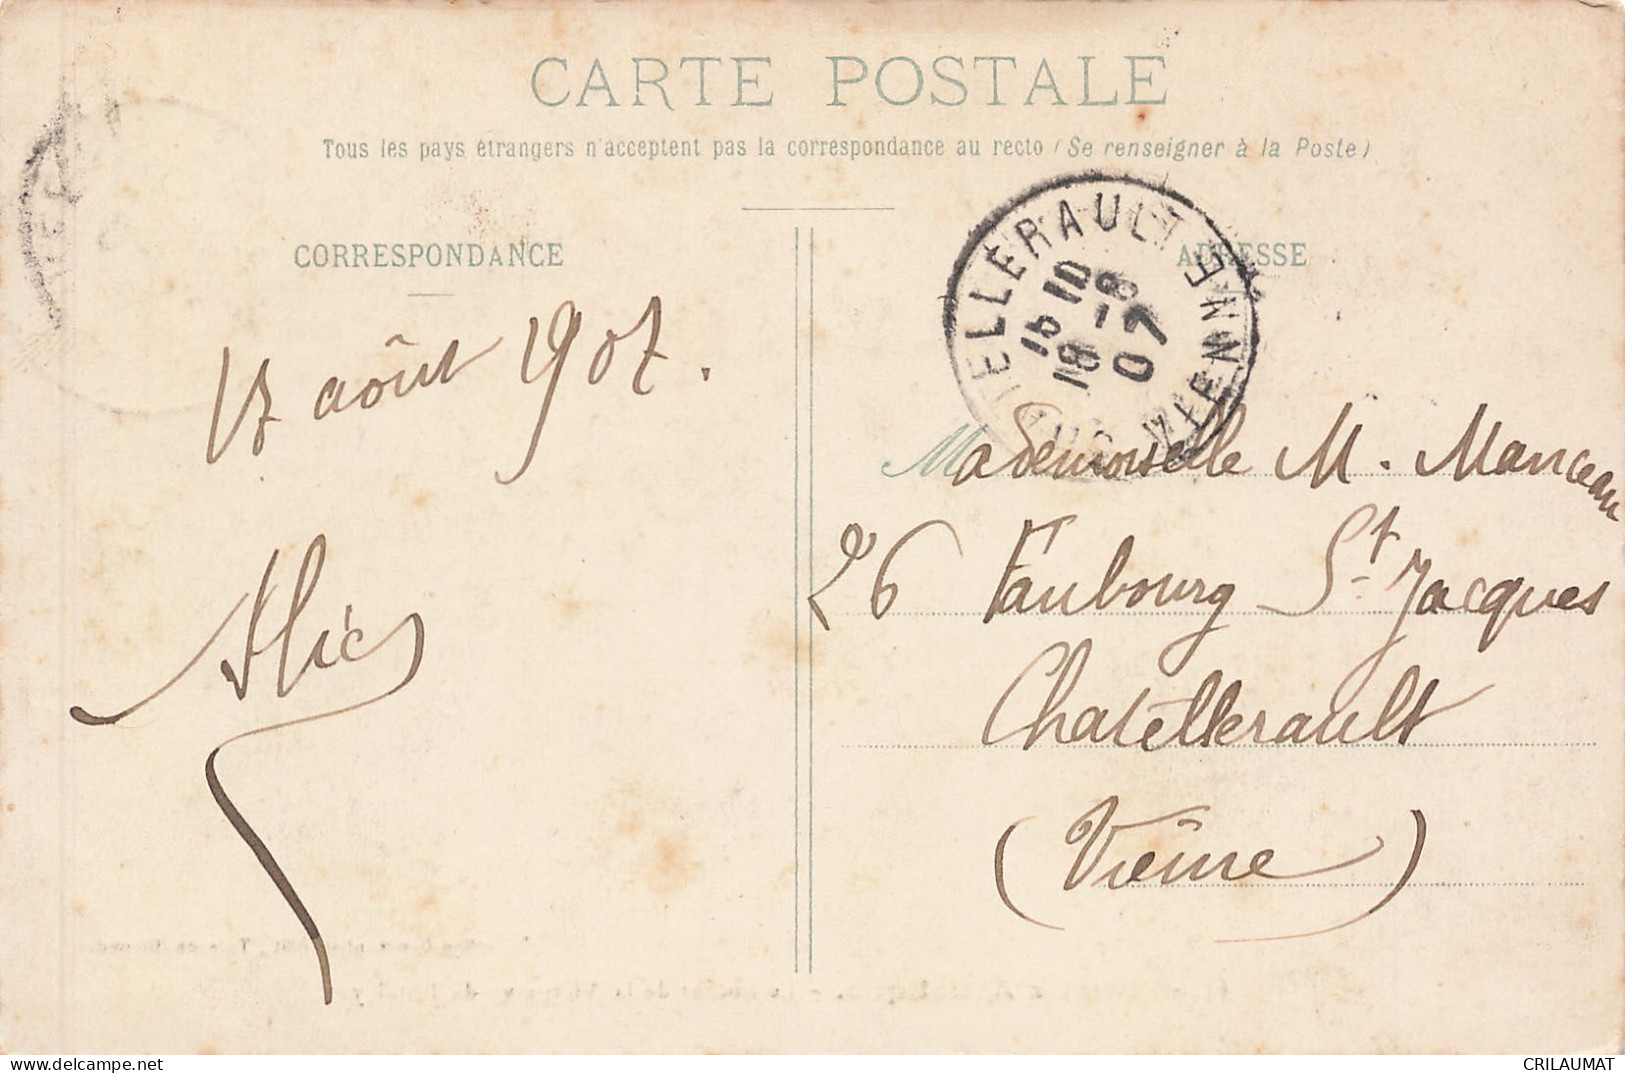 CARTE POSTALE
Tous les pays étrangers n'acceptent pas la correspondance au recto (Se renseigner à la Poste)
CORRESPONDANCE
ADRESSE
TELLERAULT VIENNE
15 10
18 - 8
07
17 août 1907.
Alice
Mademoiselle M. Manceau
26 Faubourg St Jacques
Chatellerault
(Vienne)
delcampe.net
CRILAUMAT